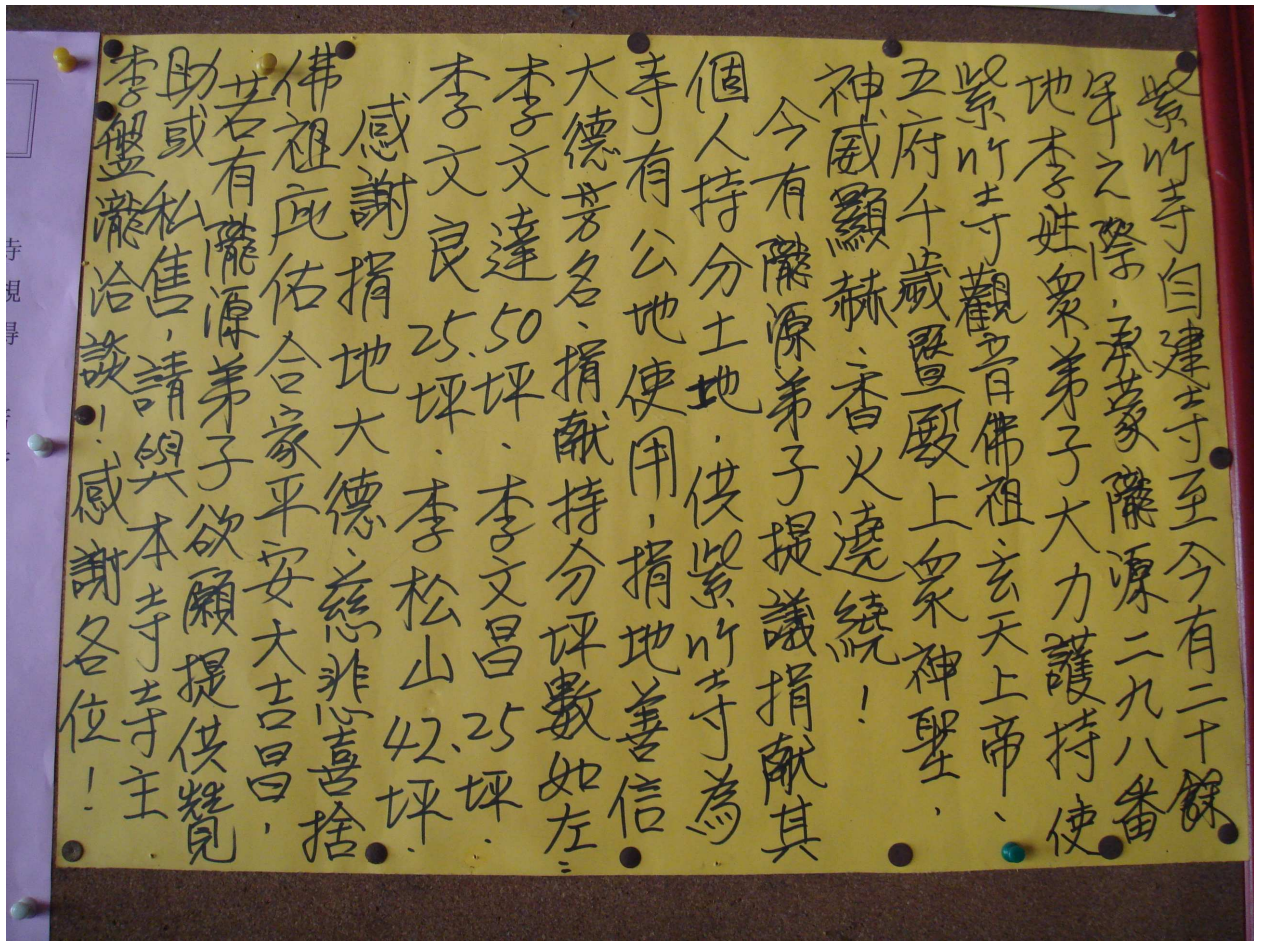 紫竹寺自建寺至今有二十餘
年之際，承蒙隴源二九八番
地李姓眾弟子大力護持使
紫竹寺觀音佛祖、玄天上帝、
五府千歲暨殿上眾神聖，
神威顯赫、香火遶繞！
今有隴源弟子提議捐献其
個人持分土地，供紫竹寺為
寺有公地使用，捐地善信
大德芳名、捐献持分坪數如左：
李文達50坪、李文昌25坪.
李文良25坪.李松山42坪.
感謝捐地大德慈悲喜捨
佛祖庇佑合家平安大吉昌，
若有隴源弟子欲願提供贊
助或私售，請與本寺寺主
李盤瀧洽談！感謝各位！
寺
視
得